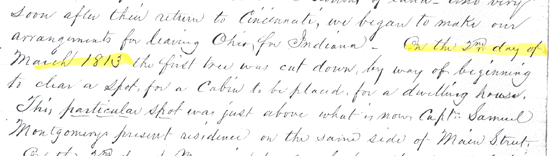 soon after their return to Cincinnati, we began to make our
arrangements for leaving Ohio, for Indiana - On the 2nd day of
March 1813 the first tree was cut down, by way of beginning
to clear a spot, for a Cabin to be placed, for a dwelling house.
This, particular spot was just above what is now Capt. Samuel
Montgomerys present residence on the same side of Main Street.